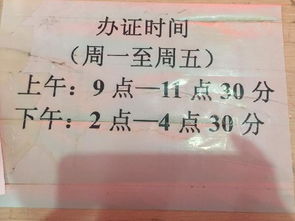 办证时间
（周一至周五）
上午：9点—11点30分
下午：2点—4点30分